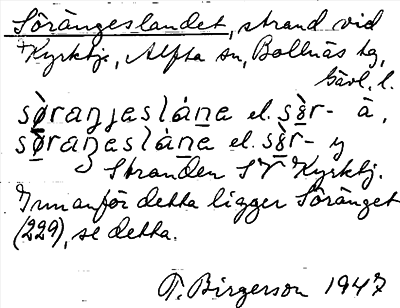 Sörängeslandet, strand vid
Kyrkbj., Alfta sn, Bollnäs tg,
Gävl. l.
sø̀raŋŋesláne el. sø̀r- à,
sø̀raŋeslàne el. sø̀r- y
Stranden S V Kyrkbj.
Innanför detta ligger Söränget
(229), se detta.
T. Birgerson 1947